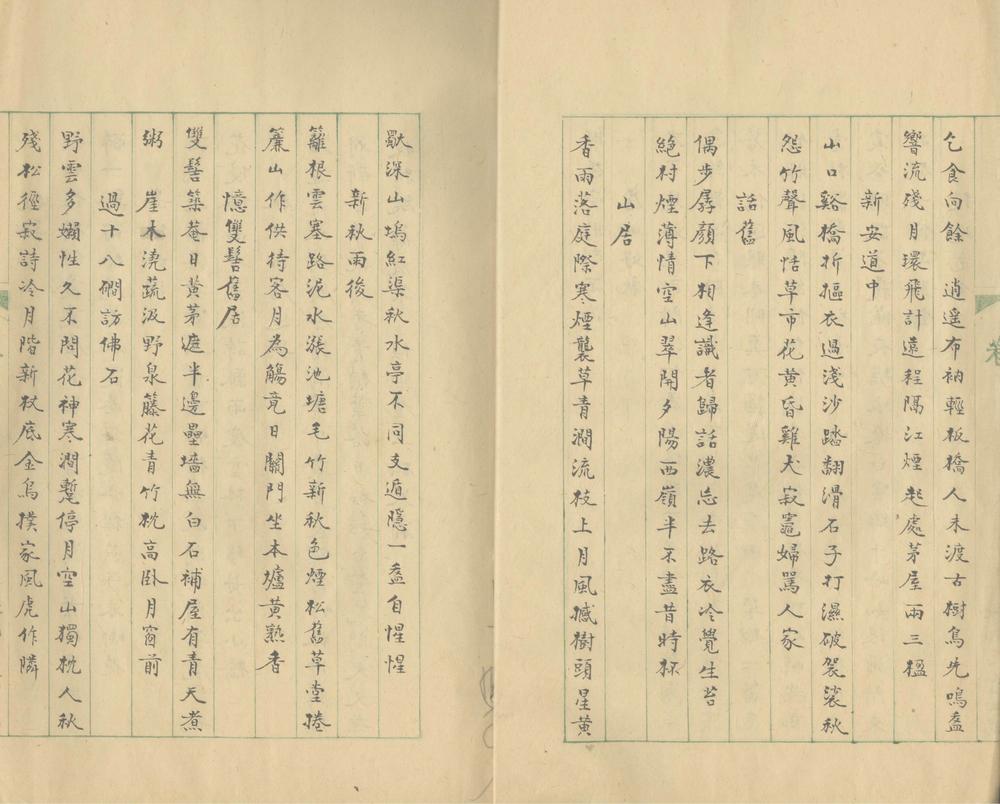 乞食向餘 逍遥布衲輕板橋人未渡古樹鳥先鳴盋
響流殘月環飛計遠程隔江煙起處茅屋兩三楹
新安道中
山口谿橋折摳衣過淺沙踏翻滑石子打濕破袈裟秋
怨竹聲風恬草市花黄昏雞犬寂竈婦罵人家
話舊
偶步孱顏下相逢識者歸話濃忘去路衣冷覺生苔
絕村煙薄情空山翠開夕陽西嶺半不盡昔時杯
山居
香雨落庭際寒煙襲草青澗流枝上月風撼樹頭星黄
歇深山塢紅渠秋水亭不同支遁隱一盋自惺惺
新秋雨後
籬根雲塞路泥水漲池塘毛竹新秋色煙松舊草堂捲
簾山作供待客月為觴竟日關門坐本壚黄熟香
憶雙髻舊居
雙髻築菴日黄茅遮半邊壘墻無白石補屋有青天煮
粥 崖木澆蔬汲野泉藤花青竹枕高卧月窗前
過十八磵訪佛石
野雲多嬾性久不問花神寒澗蹔停月空山獨枕人秋
殘松徑寂詩冷月階新杖底金烏撲家風虎作隣